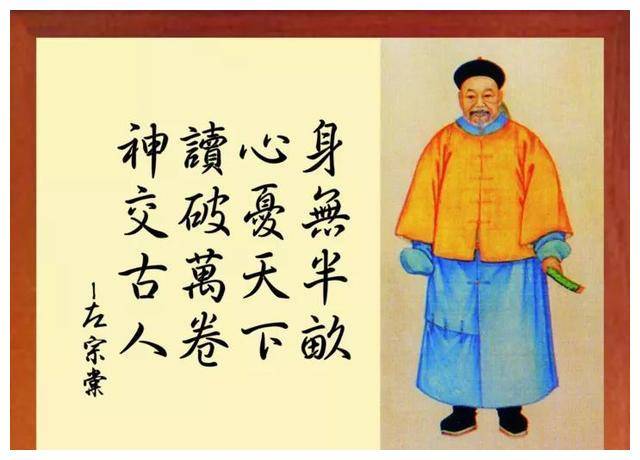 身無半畝
心憂天下
讀破萬卷
神交古人
—左宗棠